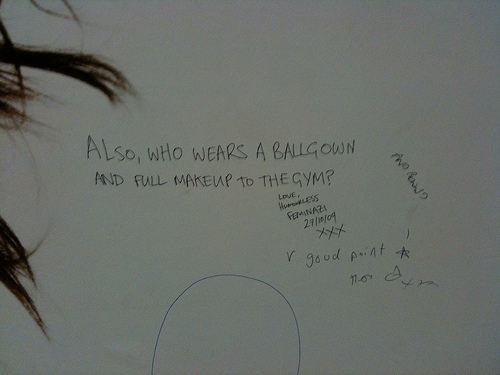 ALSO, WHO WEARS A BALLGOWN
AND FULL MAKEUP TO THE GYM?
LOVE,
HUMOURLESS
FEMINAZI
29/10/09
XXX
v good point